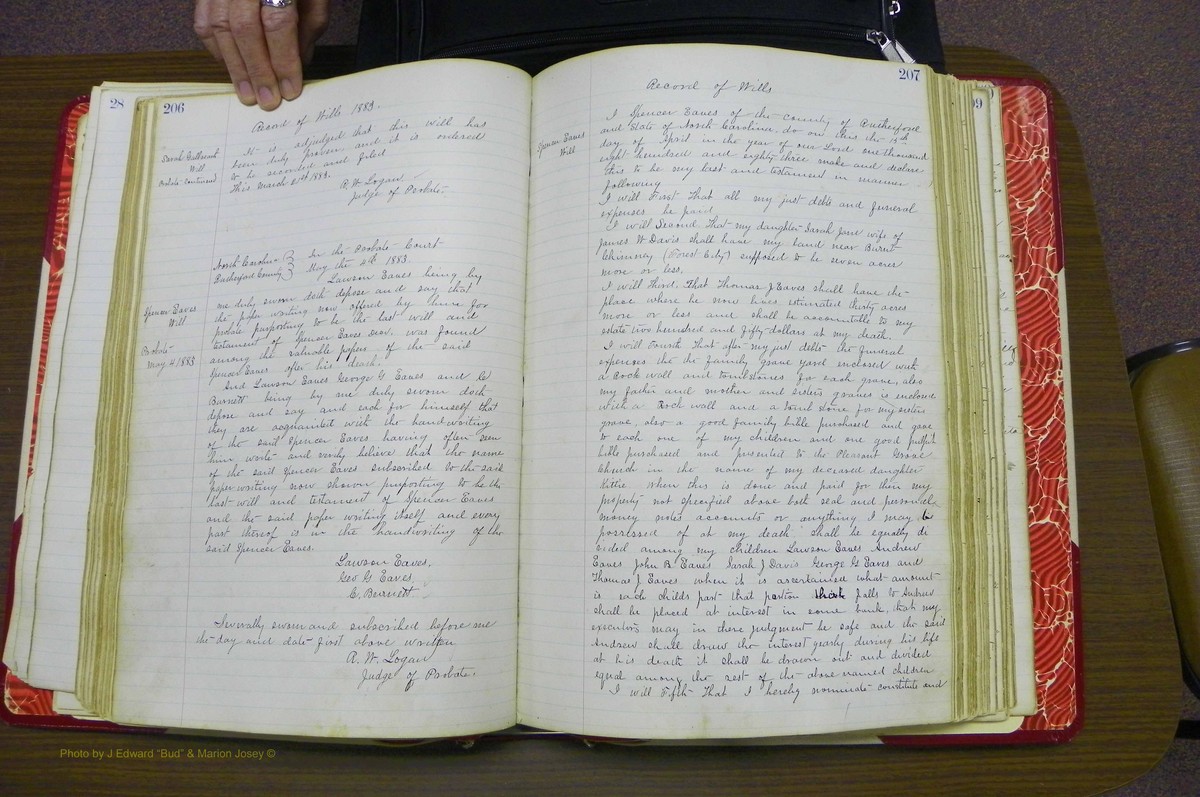 28
206
Record of Wills 1883.
Sarah Gallreant
Will
Probate continued
It is adjudged that this will has
been duly proven and it is ordered
to be recorded and filed
This March 21st 1883.
R. W. Logan
Judge of Probate.
North Carolina
Rutherford County
In the Probate Court
May the 4th 1883.
Spencer Eaves
Will
Probate
May 4/1883
Lawson Eaves being by
me duly sworn doth depose and say that
the paper writing now offered by him for
probate purporting to be the last will and
testament of Spencer Eaves decd. was found
among the valuable papers of the said
Spencer Eaves after his death.
And Lawson Eaves George G Eaves and C
Burnett being by me duly sworn doth
depose and say and each for himself that
they are acquainted with the handwriting
of the said Spencer Eaves having often seen
him write and verily believe that the name
of the said Spencer Eaves subscribed to the said
paper writing now shown purporting to be the
last will and testament of Spencer Eaves
and the said paper writing itself and every
part thereof is in the handwriting of the
said Spencer Eaves.
Lawson Eaves.
Geo G Eaves.
C. Burnett
Severally sworn and subscribed before me
the day and date first above written
R. W. Logan
Judge of Probate.
207
09
Record of Wills
Spencer Eaves
Will
I Spencer Eaves of the County of Rutherford
and State of North Carolina, do on this the 13th
day of April in the year of our Lord one thousand
eight hundred and eighty three make and declare
this to be my last and testament in manner
following
I will First That all my just debts and funeral
expenses be paid
I will Second That my daughter Sarah Jane wife of
James W Davis shall have my land near Burnt
Chimney (Forest City) supposed to be seven acres
more or less.
I will Third. That Thomas J Eaves shall have the
place where he now lives estimated thirty acres
more or less and shall be accountable to my
estate two hundred and fifty dollars at my death.
I will Fourth That after my just debts the funeral
expenses the the family grave yard enclosed with
a Rock wall and tombstones for each grave, also
my father and mother and sisters graves is enclosed
with a Rock wall and a tomb stone for my sisters
grave, also a good family bible purchased and gave
to each one of my children and one good pulpit
bible purchased and presented to the Pleasant Grove
Church in the name of my deceased daughter
Kittie when this is done and paid for then my
property not specified above both real and personel
money notes accounts or anything I may be
possessed of at my death shall be equally di
vided among my children Lawson Eaves Andrew
Eaves John B. Eaves Sarah J Davis George G Eaves and
Thomas J. Eaves when it is ascertained what amount
is each childs part that portion that falls to Andrew
shall be placed at interest in some bank, that my
executors may in there judgment be safe and the said
Andrew shall draw the interest yearly during his life
at his death it shall be drawn out and divided
equal among the rest of the above named children
I will Fifth That I hereby nominate constitute and
Photo by J Edward "Bud" & Marion Josey ©